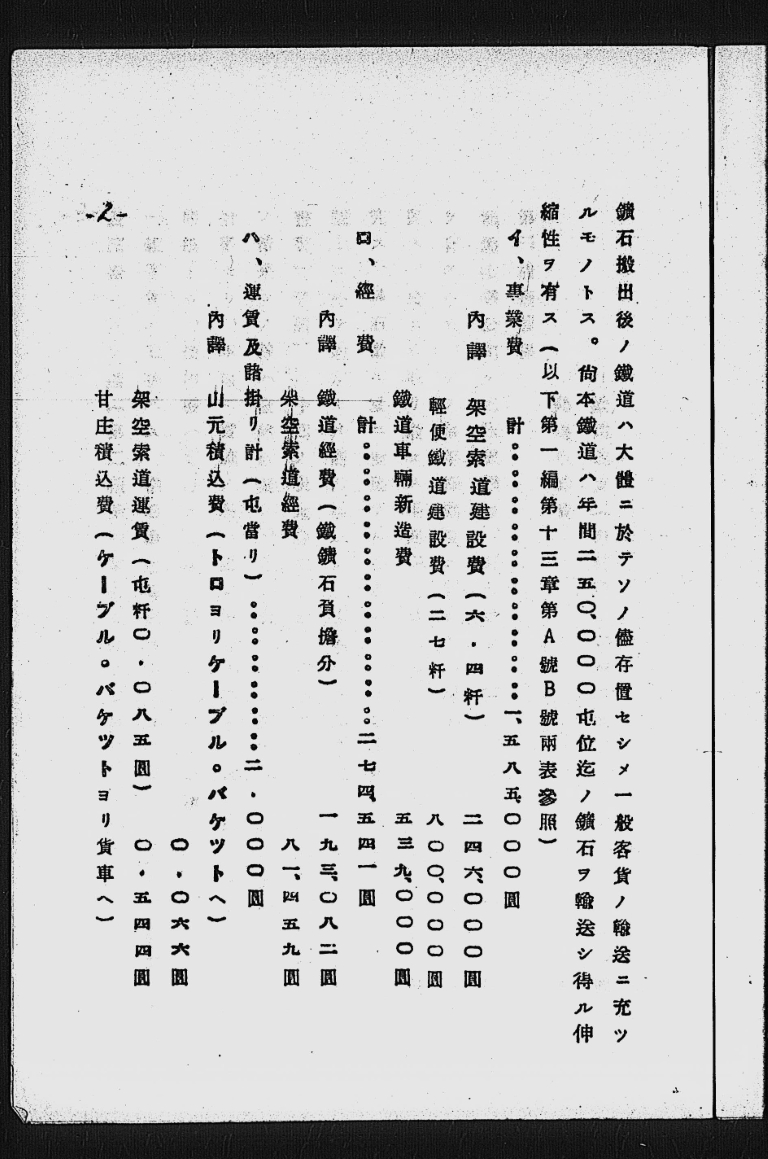 鑛石搬出後ノ鐵道ハ大體ニ於テソノ儘存置セシメ一般客貨ノ輸送ニ充ツ
ルモノトス。尙本鐵道ハ年間二五〇、〇〇〇屯位迄ノ鑛石ヲ輸送シ得ル伸
縮性ヲ有ス(以下第一編第十三章第A號B號兩表參照)
イ、事業費 計。。。。。。。。。。。。。。。。。。。。一、五八五、〇〇〇圓
內譯 架空索道建設費(六・四粁) 二四六、〇〇〇圓
輕便鐵道建設費(二七粁) 八〇〇、〇〇〇圓
鐵道車輛新造費 五三九、〇〇〇圓
ロ、經費 計。。。。。。。。。。。。。。。。。。。。。二七四、五四一圓
內譯 鐵道經費(鐵鑛石負擔分) 一九三、〇八二圓
架空索道經費 八一、四五九圓
ハ、運賃及諸掛リ計(屯當リ)。。。。。。。。。。。二・〇〇〇圓
內譯 山元積込費(トロヨリケーブル。バケツトヘ)
〇・〇六六圓
架空索道運賃(屯粁〇・〇八五圓) 〇・五四四圓
甘庄積込費(ケーブル。バケツトヨリ貨車ヘ)
-2-